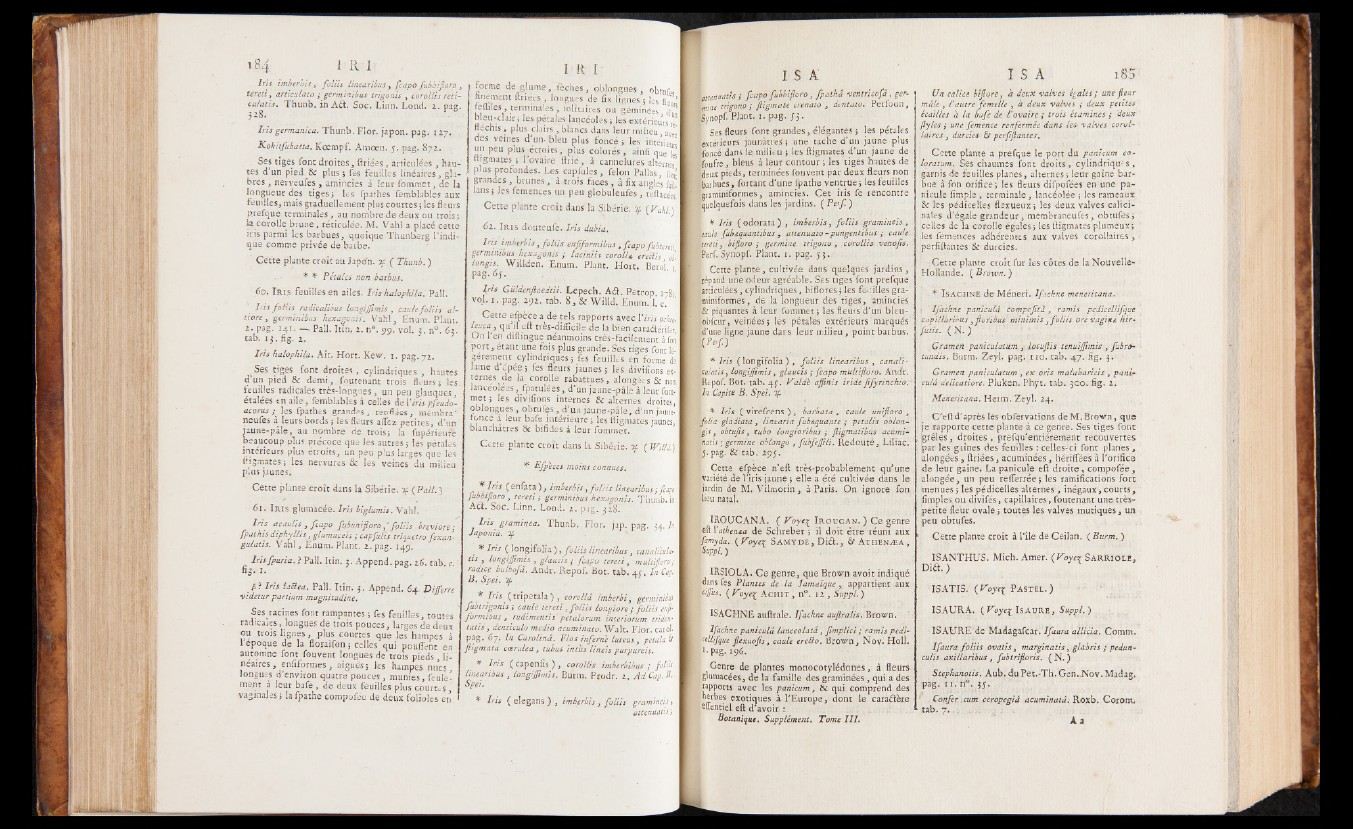 184 I R I
Iris imberbis, foliis linearibus, scapo subbifloro,
tereti, articulato ; germinibus trigonis, corollis reti-
culatis. Thunb. in Act. Soc. Linn. Lond. 2. pag.
328.
Iris germanica. Thunb. Flor. japon. pag. 127.
Kohitsubatta. Kœmpf. Amœn. 5. pag. 872.
Ses tiges sont droites, striées, articulées, hau-
tes d'un pied & plus ; ses feuilles linéaires, gla-
bres, nerveuses, amincies à leur sommet, de la
longueur des tiges ; les spathes semblables aux
feuilles, mais graduellement plus courtes ; les fleurs
presque terminales, au nombre de deux ou trois ;
la corolle brune, réticulée. M. Vahl a placé cette
iris parmi les barbues, quoique Thunberg l'indi-
que comme privée de barbe.
Cette plante croit au Japon. ♃ ( Thunb. )
* * Pétales non barbus.
60. IRIS feuilles en ailes. Iris halophila. Pall.
Iris foliis radicalibus longissimis, caule foliis al-
tiore, germinibus hexagonis. Vahl, Enum. Plant.
2. pag. 141. — Pall. Itin. 2. n°. 99. vol. 3. n°. 63.
tab. 13. fig. 2.
Iris halophila. Ait. Hort. Kew. 1. pag. 72.
Ses tiges sont droites, cylindriques, hautes
d'un pied & demi, soutenant trois fleurs ; les
feuilles radicales très-longues, un peu glauques,
étalées en aile, semblables à celles de l'iris pseudo-
acorus ; les spathes grandes, renflées, membra-
neuses à leurs bords ; les fleurs assez petites, d'un
jaune-pâle, au nombre de trois ; la supérieure
beaucoup plus précoce que les autres ; les pétales
intérieurs plus étroits, un peu plus larges que les
stigmates ; les nervures & les veines du milieu
plus jaunes.
Cette plante croît dans la Sibérie. ♃ ( Pall. )
61. IRIS glumacée. Iris biglumis. Vahl.
Iris acaulis, scapo subunifloro, foliis breviore ;
spathis diphyllis, glumaceis ; capsulis triquetro sexan-
gulatis. Vahl, Enum. Plant. 2. pag. 149.
Iris spuria. ? Pall. Itin. 3. Append. pag. 26. tab. c.
fig. 1.
β ? Iris lactea. Pall. Itin. 3. Append. 64. Differre
videtur partium magnitudine.
Ses racines sont rampantes ; ses feuilles, toutes
radicales, longues de trois pouces, larges de deux
ou trois lignes, plus courtes que les hampes à
l'époque de la floraison ; celles qui poussent en
automne sont souvent longues de trois pieds, li-
néaires, ensiformes, aiguës ; les hampes nues,
longues d'environ quatre pouces, munies, seule-
ment à leur base, de deux feuilles plus courtes,
vaginales ; la spathe composée de deux folioles en
I R I
forme de glume, sèches, oblongues, obtuses,
finement striées, longues de six lignes ; les fleurs
sessiles, terminales, solitaires ou géminées, d'un
bleu-clair ; les pétales lancéolés ; les extérieurs ré-
fléchis, plus clairs, blancs dans leur milieu, avec
des veines d'un bleu plus foncé ; les intérieurs
un peu plus étroits, plus colorés, ainsi que les
stigmates ; l'ovaire strié, à cannelures alternes,
plus profondes. Les capsules, selon Pallas, sont
grandes, brunes, à trois faces, à six angles sail-
lans ; les semences un peu globuleuses, effacées.
Cette plante croît dans la Sibérie. ♃ ( Vahl. )
62. IRIS douteuse. Iris dubia.
Iris imberbis, foliis ensiformibus, scapo subtereti,
germinibus hexagonis ; laciniis corollæ erectis, ob-
longis. Willden. Enum. Plant. Hort. Berol. 1.
pag. 65.
Iris Güldenstaedtii. Lepech. Act. Petrop. 1781.
vol. 1. pag. 292. tab. 8, & Willd. Enum. l. c.
Cette espèce a de tels rapports avec l'iris ochro-
leuca, qu'il est très-difficile de la bien caractériser.
On l'en distingue néanmoins très-facilement à son
port, étant une fois plus grande. Ses tiges sont lé-
gérement cylindriques ; ses feuilles en forme de
lame d'épée ; les fleurs jaunes ; les divisions ex-
ternes de la corolle rabattues, alongées & non
lancéolées, spatulées, d'un jaune-pâle à leur som-
met ; les divisions internes & alternes droites,
oblongues, obtuses, d'un jaune-pâle, d'un jaune-
foncé à leur base intérieure ; les stigmates jaunes,
blanchâtres & bifides à leur sommet.
Cette plante croît dans la Sibérie. ♃ ( Willd. )
* Espèces moins connues.
* Iris ( ensata ), imberbis, foliis linearibus ; scapo
subbifloro, tereti ; germinibus hexagonis. Thunb. in
Act. Soc. Linn. Lond. 2. pag. 328.
Iris graminea. Thunb. Flor. jap. pag. 34. In
Japoniâ. ♃
* Iris ( longifolia ), foliis linearibus, canalicula-
tis, longissimis, glaucis ; scapo tereti, multifloro ;
radice bulbosâ. Andr. Reposit. Bot. tab. 45. In Cap.
B. Spei. ♃
* Iris ( tripetala ), corollâ imberbi, germinibus
subtrigonis ; caule tereti, foliis longiore ; foliis ensi-
formibus, rudimentis petalorum interiorum triden-
tatis, denticulo medio acuminato. Walt. Flor. carol.
pag. 67. In Carolinâ. Flos infernè luteus, petala &
stigmata cœrulea, tubus intùs lineis purpureis.
* Iris ( capensis ), corollis imberbibus ; foliis
linearibus, longissimis. Burm. Prodr. 2. Ad Cap. B.
Spei.
* Iris ( elegans ), imberbis, foliis gramineis,
attenuatis ;
I S A
attenuatis ; scapo subbifloro, spathâ ventricosâ, ger-
mine trigono ; stigmate crenato, dentato. Persoon,
Synops. Plant. 1. pag. 53.
Ses fleurs sont grandes, élégantes ; les pétales
extérieurs jaunâtres ; une tache d'un jaune plus
foncé dans le milieu ; les stigmates d'un jaune de
soufre, bleus à leur contour ; les tiges hautes de
deux pieds, terminées souvent par deux fleurs non
barbues, sortant d'une spathe ventrue ; les feuilles
graminiformes, amincies. Cet iris se rencontre
quelquefois dans les jardins. ( Pers. )
* Iris ( odorata ), imberbis, foliis gramineis,
caule subæquantibus, attenuato-pungentibus ; caule
tereti, bifloro ; germine trigono, corollis venosis.
Pers. Synops. Plant. 1. pag. 53.
Cette plante, cultivée dans quelques jardins,
répand une odeur agréable. Ses tiges sont presque
articulées, cylindriques, biflores ; les feuilles gra-
miniformes, de la longueur des tiges, amincies
& piquantes à leur sommet ; les fleurs d'un bleu-
obscur, veinées ; les pétales extérieurs marqués
d'une ligne jaune dans leur milieu, point barbus.
( Pers. )
* Iris ( longifolia ), foliis linearibus, canali-
culatis, longissimis, glaucis ; scapo multifloro. Andr.
Repos. Bot. tab. 45. Valdè affinis iride sisyrenchio.
In Capite B. Spei. ♃
* Iris ( virescens ), barbata, caule unifloro,
folia gladiata, linearia subæquante ; petalis oblon-
gis, obtusis, tubo longioribus ; stigmatibus acumi-
natis ; germine oblongo, subsessili. Redouté, Liliac.
5. pag. & tab. 295.
Cette espèce n'est très-probablement qu'une
variété de l'iris jaune ; elle a été cultivée dans le
jardin de M. Vilmorin, à Paris. On ignore son
lieu natal.
IROUCANA. ( Voyez IROUCAN. ) Ce genre
est l'athenæa de Schreber ; il doit être réuni aux
samyda. ( Voyez SAMYDE, Dict., & ATHENÆA,
Suppl. )
IRSIOLA. Ce genre, que Brown avoit indiqué
dans ses Plantes de la Jamaïque, appartient aux
cissus. ( Voyez ACHIT, n°. 12, Suppl. )
ISACHNE australe. Isachne australis. Brown.
Isachne paniculâ lanceolatâ, simplici ; ramis pedi-
cellisque flexuosis, caule erecto. Brown, Nov. Holl.
1. pag. 196.
Genre de plantes monocotylédones, à fleurs
glumacées, de la famille des graminées, qui a des
rapports avec les panicum, & qui comprend des
herbes exotiques à l'Europe, dont le caractère
essentiel est d'avoir :
Botanique. Supplément. Tome III.
I S A 185
Un calice biflore, à deux valves égales ; une fleur
mâle, l'autre femelle, à deux valves ; deux petites
écailles à la base de l'ovaire ; trois étamines ; deux
styles ; une semence renfermée dans les valves corol-
laires, durcies & persistantes.
Cette plante a presque le port du panicum co-
loratum. Ses chaumes sont droits, cylindriques,
garnis de feuilles planes, alternes ; leur gaîne bar-
bue à son orifice ; les fleurs disposées en une pa-
nicule simple, terminale, lancéolée ; les rameaux
& les pédicelles flexueux ; les deux valves calici-
nales d'égale grandeur, membraneuses, obtuses ;
celles de la corolle égales ; les stigmates plumeux ;
les semences adhérentes aux valves corollaires,
persistantes & durcies.
Cette plante croît sur les côtes de la Nouvelle-
Hollande. ( Brown. )
* ISACHNE de Méneri. Isachne meneritana.
Isachne paniculâ compositâ, ramis pedicellisque
capillaribus, floribus minimis, foliis ore vaginæ hir-
sutis. ( N. )
Gramen paniculatum, locustis tenuissimis, subro-
tundis. Burm. Zeyl. pag. 110. tab. 47. fig. 3.
Gramen paniculatum, ex oris malabaricis, pani-
culâ delicatiore. Pluken. Phyt. tab. 300. fig. 2.
Meneritana. Herm. Zeyl. 24.
C'est d'après les observations de M. Brown, que
je rapporte cette plante à ce genre. Ses tiges sont
grêles, droites, presqu'entiérement recouvertes
par les gaînes des feuilles : celles-ci sont planes,
alongées, striées, acuminées, hérissées à l'orifice
de leur gaîne. La panicule est droite, composée,
alongée, un peu resserrée ; les ramifications fort
menues ; les pédicelles alternes, inégaux, courts,
simples ou divisés, capillaires, soutenant une très-
petite fleur ovale ; toutes les valves mutiques, un
peu obtuses.
Cette plante croît à l'île de Ceilan. ( Burm. )
ISANTHUS. Mich. Amer. ( Voyez SARRIOLE,
Dict. )
ISATIS. ( Voyez PASTEL. )
ISAURA. ( Voyez ISAURE, Suppl. )
ISAURE de Madagascar. Isaura allicia. Comm.
Isaura foliis ovatis, marginatis, glabris ; pedun-
culis axillaribus, subtrifloris. ( N. )
Stephanotis. Aub. du Pet.-Th. Gen. Nov. Madag.
pag. 11. n°. 35.
Confer cum ceropegiâ acuminatâ. Roxb. Corom.
tab. 7.
A a